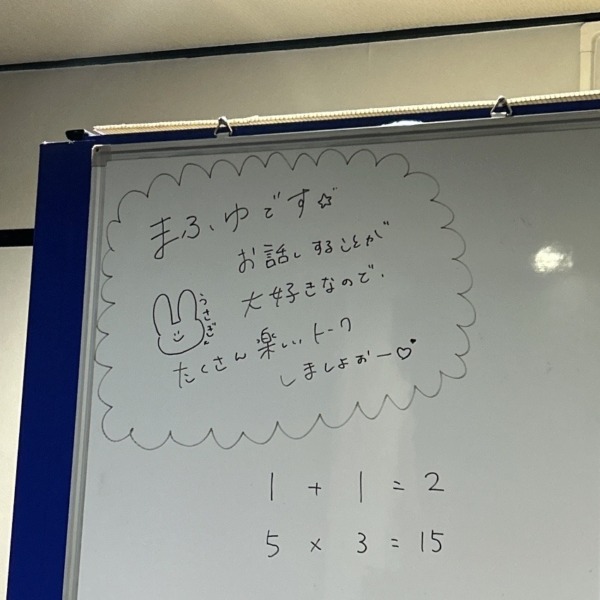 まふゆです☆
お話しすることが
大好きなので、
うさぎさん
たくさん楽しいトーク
しましょおー♡
1 + 1 = 2
5 × 3 = 15